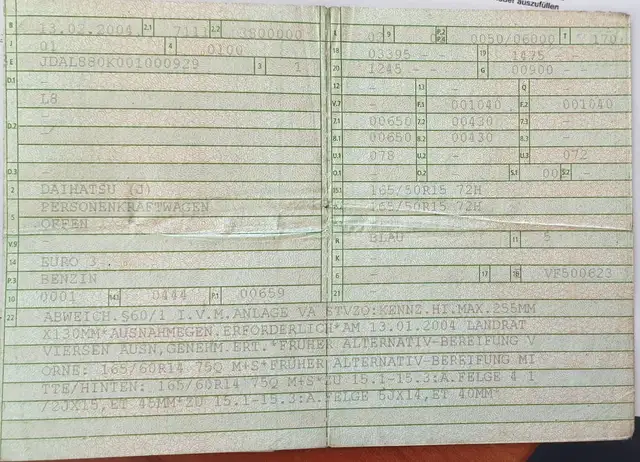 der auszufüllen
B 13.02.2004 2.1 7111 2.2
J 01 4 0100
E JDAL880K001000929 3 1
D.1 -
L8
D.2 -
D.3 -
2 DAIHATSU (J)
5 PERSONENKRAFTWAGEN
OFFEN
V.9 -
14 EURO 3
P.3 BENZIN
10 0001 14.1 0444 P.1 00659
9 P.2 P.4 0050/06000 T 170
18 03395 - - 19 1475
20 1245 - - G 00900 -
12 - 13 - Q -
V.7 - F.1 001040 F.2 001040
7.1 00650 7.2 00430 7.3 -
8.1 00650 8.2 00430 8.3 -
U.1 078 U.2 - U.3 072
O.1 - O.2 - S.1 00 S.2 -
15.1 165/50R15 72H
165/50R15 72H
-
R BLAU 11 5
K -
6 - 17 16 VF500623
21 -
22 ABWEICH.§60/1 I.V.M.ANLAGE VA STVZO:KENNZ.HI.MAX.255MM
X130MM*AUSNAHMEGEN.ERFORDERLICH*AM 13.01.2004 LANDRAT
VIERSEN AUSN,GENEHM.ERT.*FRUHER ALTERNATIV-BEREIFUNG V
ORNE: 165/60R14 75Q M+S*FRUHER ALTERNATIV-BEREIFUNG MI
TTE/HINTEN: 165/60R14 75Q M+S*ZU 15.1-15.3:A.FELGE 4 1
/2JX15,ET 46MM*ZU 15.1-15.3:A.FELGE 5JX14,ET 40MM*